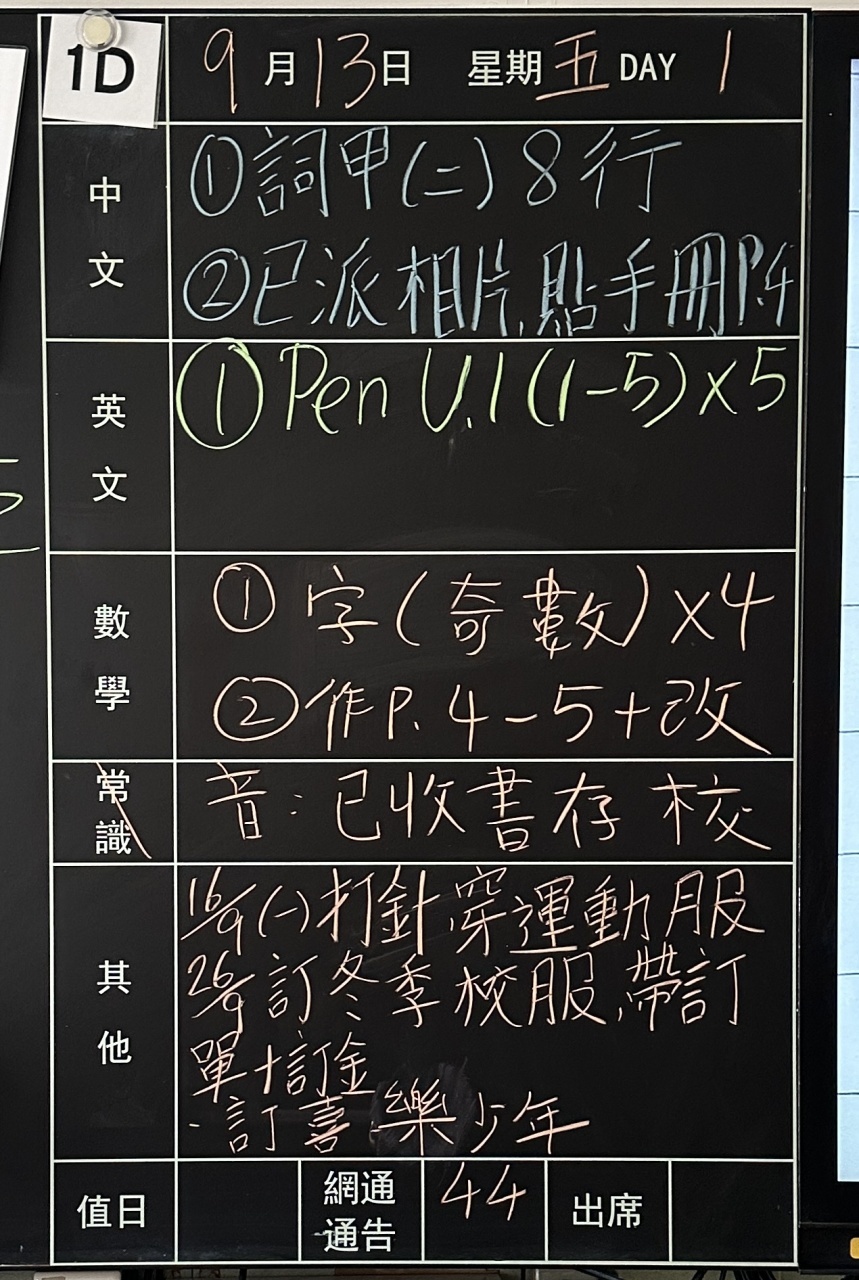 1D
9月13日 星期五 DAY 1
中文
①詞甲(二)8行
②已派相片,貼手冊P.4
英文
① Pen U.1 (1-5)×5
數學
① 字(奇數)×4
②作P.4-5+改
常識
音:已收書存校
其他
16/9(一)打針,穿運動服
26/9訂冬季校服,帶訂
單+訂金
·訂喜樂少年
值日 網通通告 44 出席
5